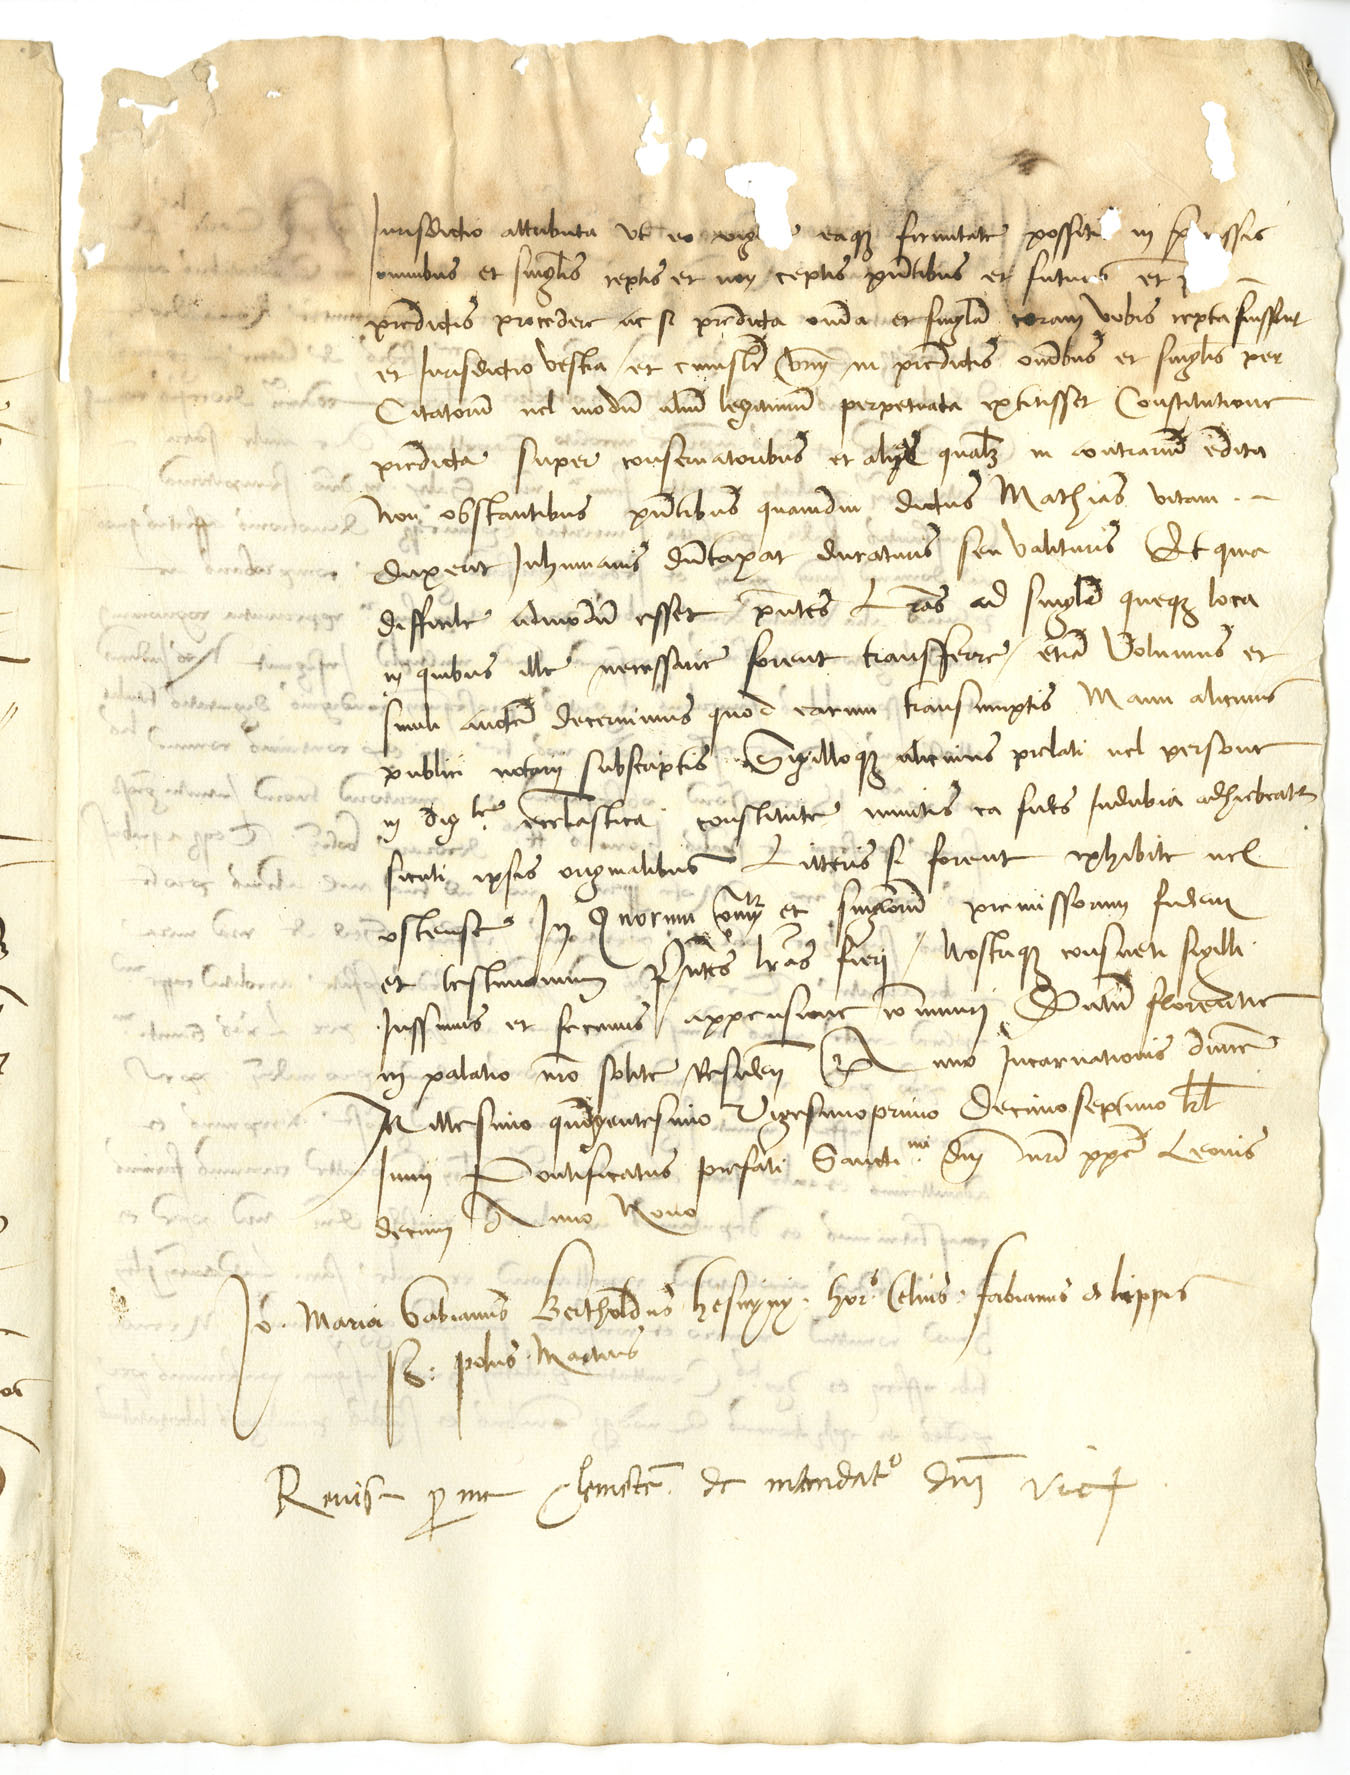 Jurisdictio attributa ut eo eaq firmitate possitis in
omnibus et singlis ceptis et non ceptis pntibus et futuris et
predictis procedere ac si predicta omnia et singla coram vobis cepta fuissent
et Jurisdictio vestra et cuiuslt vrm in predictis omnibus et singlis per
Citatorum vel modum alium legitimum perpetuata extitisset Constitutione
predicta super conservatoribus et alijs qualz in contrarium edita
Non obstantibus pntibus quamdiu dictus Mathias vitam
duxerit Inhumanis dumtaxat duraturis seu valituris Et quia
difficile admodum esset pntes Lras ad singla queqz loca
in quibus ille necessarie forent transferre etiam Volumus et
simili aucte decernimus quod earum transumptis Manu alicuius
publici notarij subscriptis Sigilloqz alicuius prelati vel persone
in dig.te ecclastica constitute munitis ea fides Indubia adhibeatur
sicuti ipsis originalibus Litteris si forent exhibite vel
ostense In Quorum omn et singlorum premissorum fidem
et testimonium Pntes lras fieri / Nostriqz consueti sigilli
Jussimus et fecimus appensione comuniri Datum florentie
in palatio nro solite Residen Anno Incarnationis dnice
Millesimo quingentesimo Vigesimoprimo Decimoseptimo kl
Junij Pontificatus prefati Sancti.mi dni nri ppe Leonis
decimi Anno Nono
Jo. Maria Bertholdus hor. Celius. fabianus d lippis
polus
Revis p me de mandato dni vic